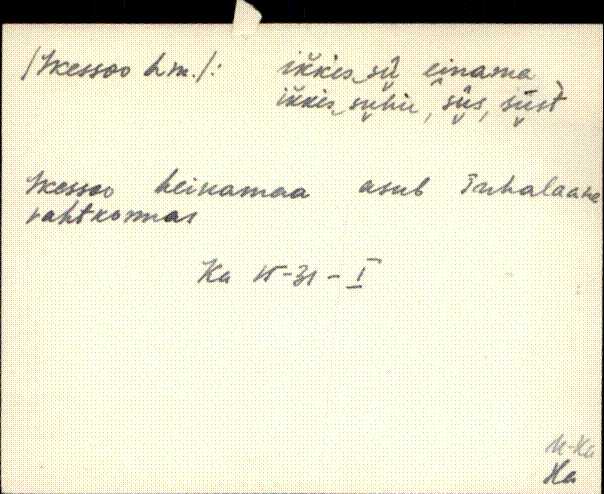 /Ikessoo hm./: ikkis sū einama
ikkis suhu, sūs, sūst
Ikessoo heinamaa asub Tuhalaane
vahtkonnas
Ka II-31-I
M-Ka
Ha